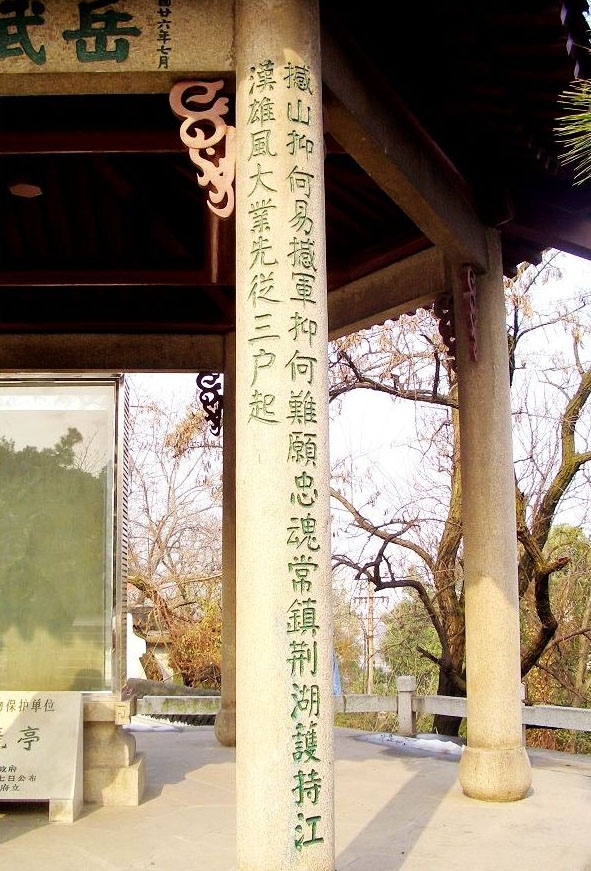 廿六年七月
岳武
撼山抑何易撼軍抑何難願忠魂常鎮荆湖護持江
漢雄風大業先從三户起
保护单位
亭
政府
七日公布
府立